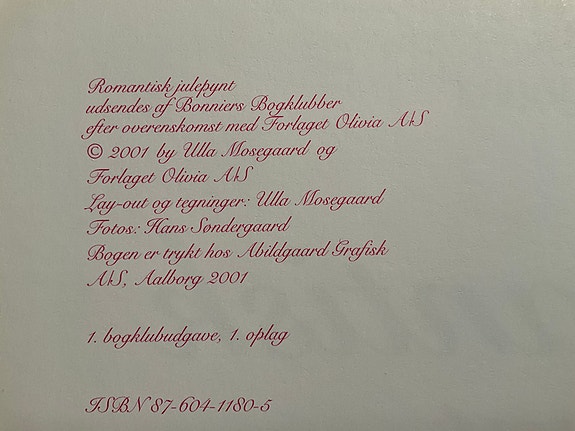 Romantisk julepynt
udsendes af Bonniers Bogklubber
efter overenskomst med Forlaget Olivia A/S
© 2001 by Ulla Mosegaard og
Forlaget Olivia A/S
Lay-out og tegninger: Ulla Mosegaard
Fotos: Hans Søndergaard
Bogen er trykt hos Abildgaard Grafisk
A/S, Aalborg 2001
1. bogklubudgave, 1. oplag
ISBN 87-604-1180-5